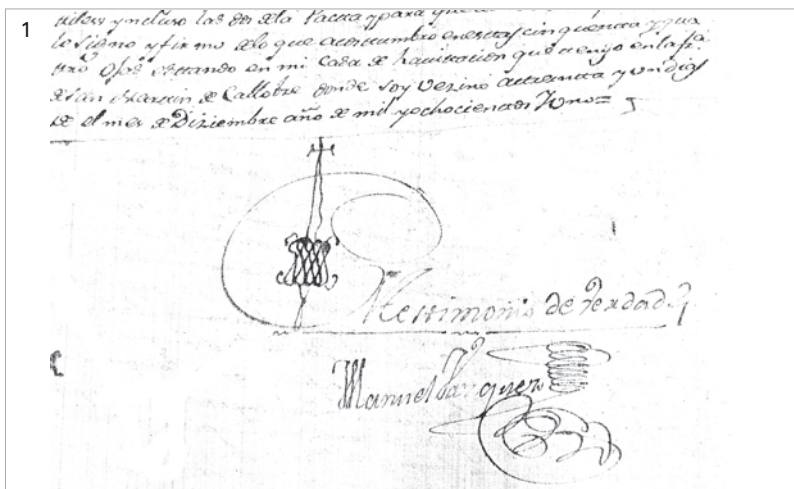 1
utiles y incluso las dos de la Pauta y para que
lo signo y firmo de lo que acostumbro en estas cinquenta y qua
tro ojas estando en mi casa de havitacion que tengo en la fra
de San Martin de Callobre donde soy vezino a treinta y un dias
de el mes de Diziembre año de mil y ochocientos y uno=
Ttestimonio de Verdad
Manuel Vazquez